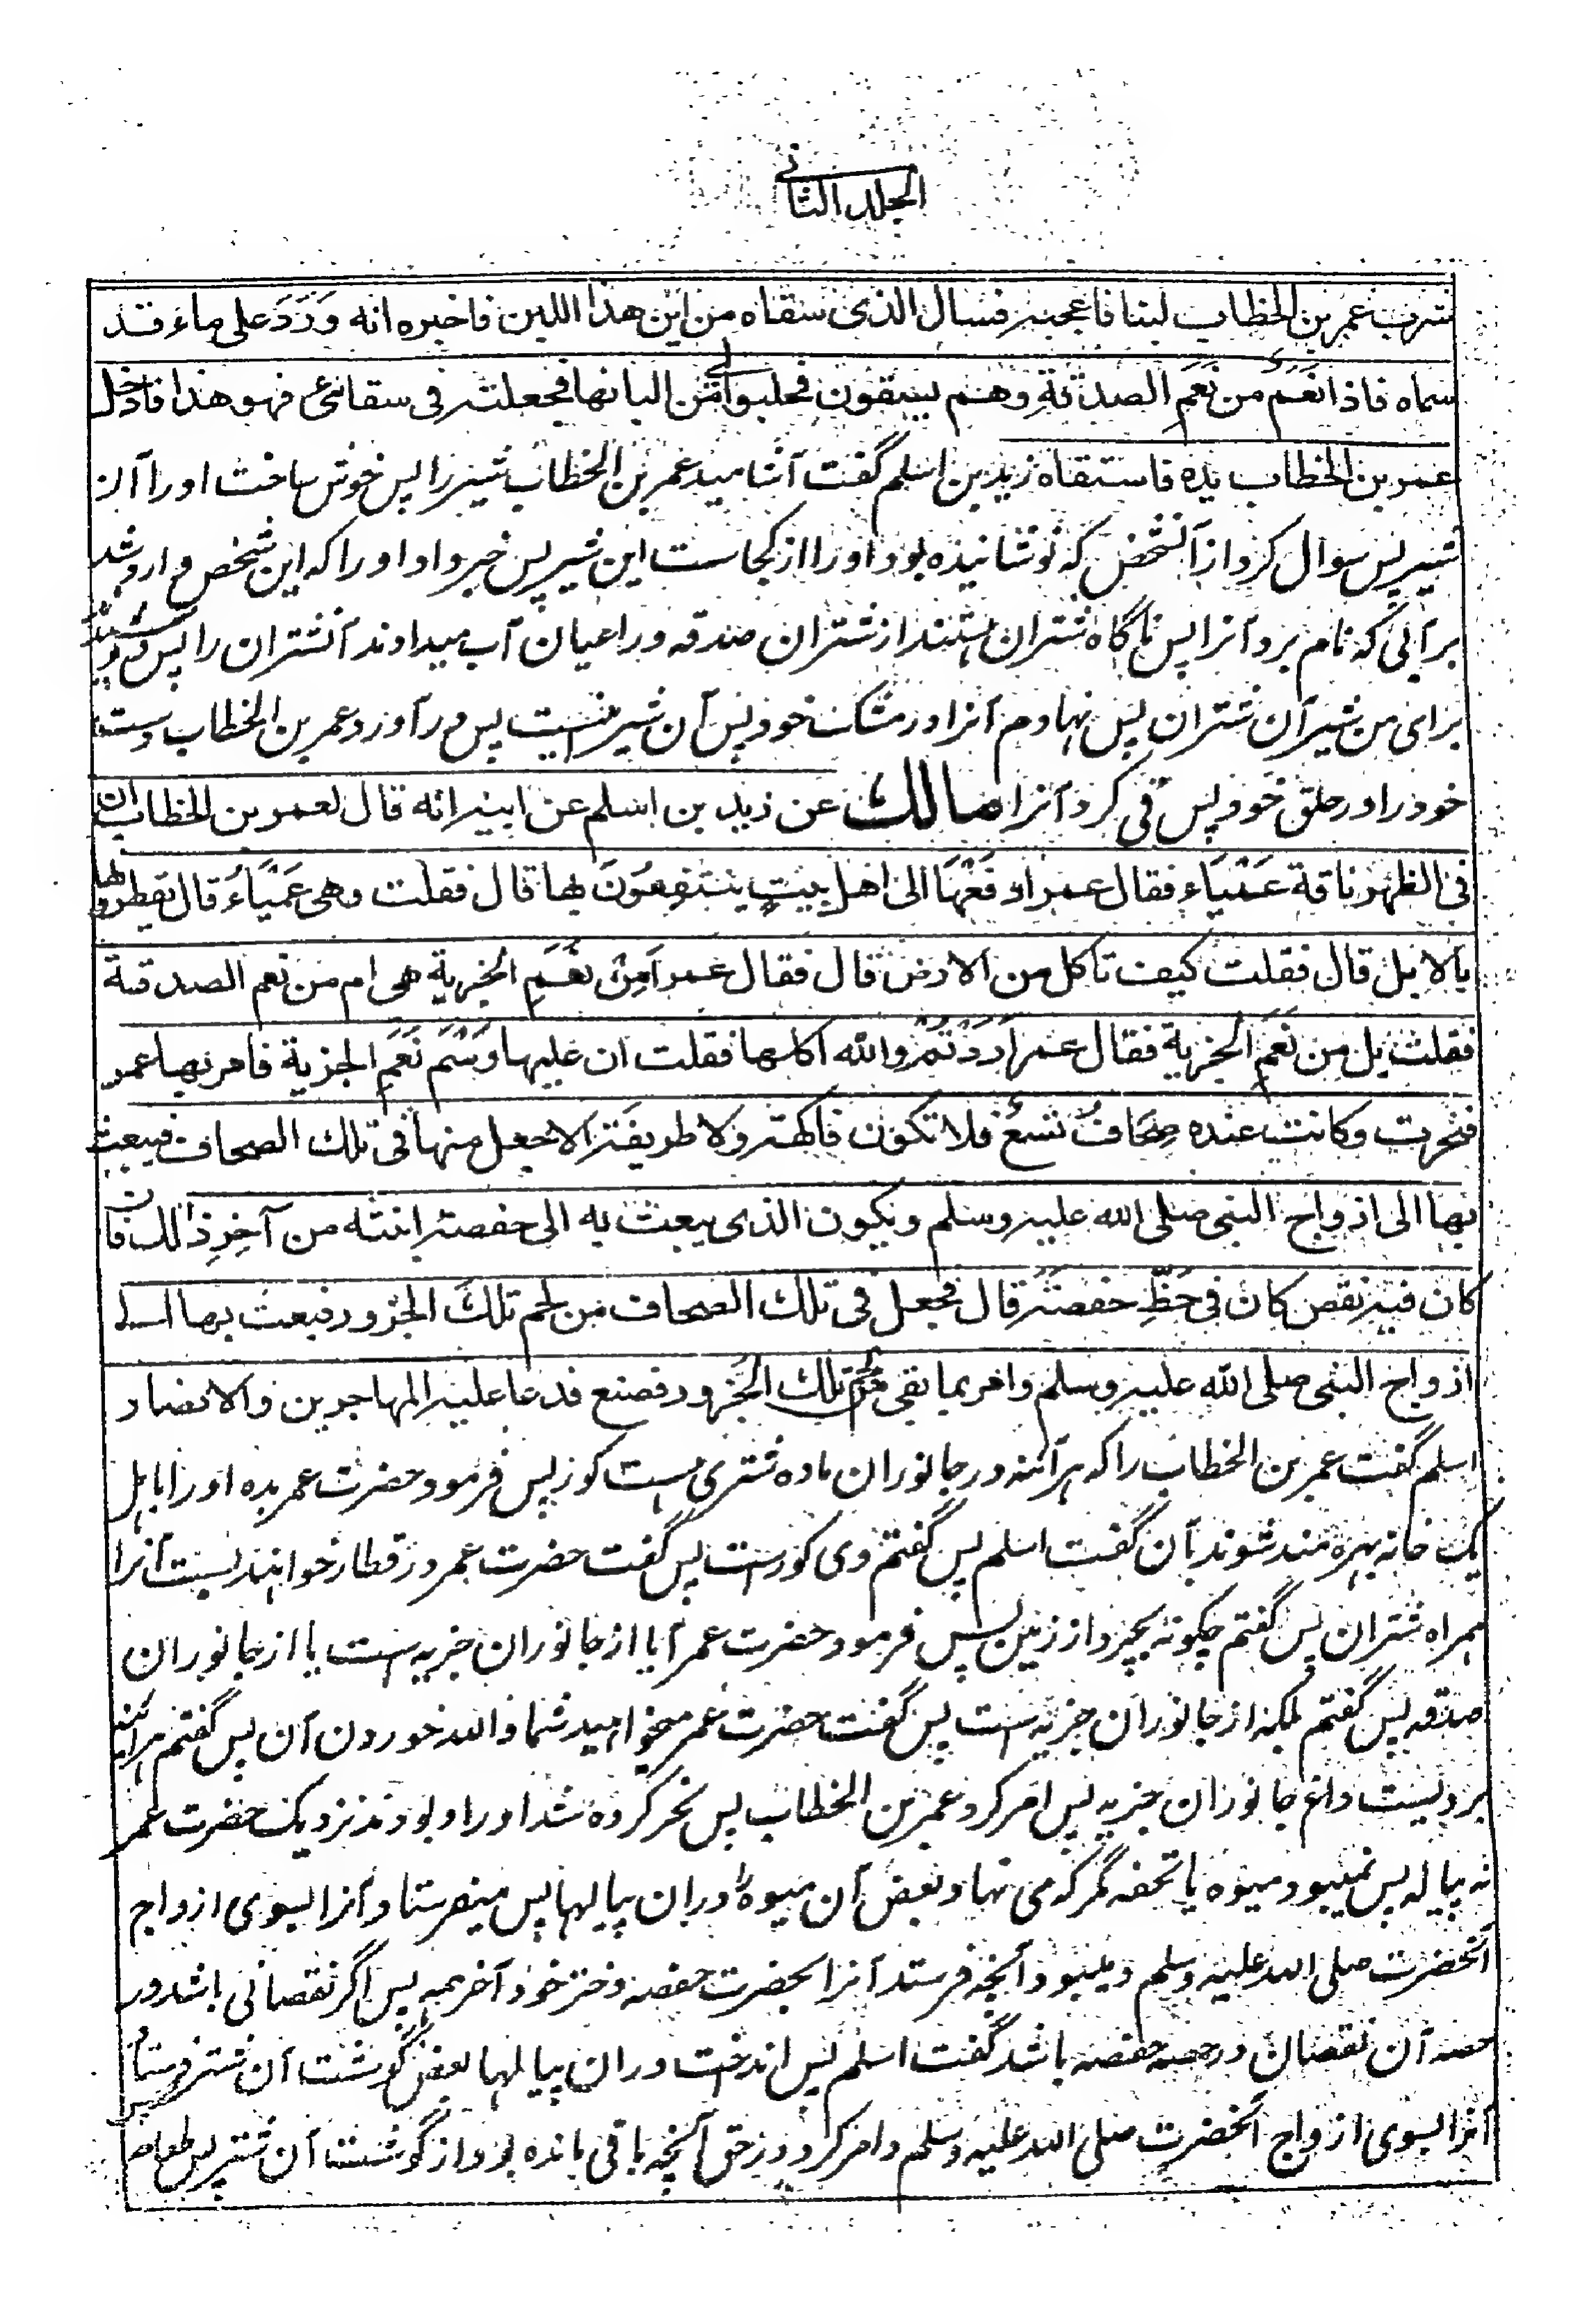 الجلد الثانی
شرب عمر بن الخطاب لبنا فاعجبه فسال الذی سقاه من این هذا اللبن فاخبره انه وَرَدَ علی ماء قد
سماه فاذا نَعَمٌ من نَعَمِ الصدقةِ وهم یسقون فحلبوا لی من البانها فجعلته فی سقائی فهو هذا فادخل
عمر بن الخطاب یده فاستقاه زید بن اسلم گفت آشامید عمر بن الخطاب شیر را پس خوش ساخت او را آن
شیر پس سوال کرد از آنشخص که نوشانیده بود او را از کجاست این شیر پس خبر داد او را که این شخص وارد شد
بر آبی که نام برد آنرا پس ناگاه شتران هستند از شتران صدقه و راعیان آب میدادند آنشتران را پس دوشیدند
برای من شیر آن شتران پس نهادم آنرا در مشک خود پس آن شیر اینست پس در آورد عمر بن الخطاب دست
خود را در حلق خود پس قی کرد آنرا مالك عن زید بن اسلم عن ابیه انه قال لعمر بن الخطاب ان
فی الظهر ناقة عَمْیَاء فقال عمر ادفَعْهَا الی اهل بیتٍ ینتفِعُوْنَ بها قال فقلت وهی عَمْیَاءُ قال یقطرونها
بالابل قال فقلت کیف تاکل من الارض قال فقال عمر اَمِنْ نَعَمِ الجزیة هی ام من نعم الصدقة
فقلت بل من نَعَمِ الجزیة فقال عمر اَرَدْتُمْ والله اکلها فقلت ان علیها وَسْمَ نَعَمِ الجزیة فامر بها عمر
فنحرت وکانت عنده صِحَافٌ تسعٌ فلا تکون فاکهة ولا طریفة الا جعل منها فی تلك الصحاف فیبعث
بها الی ازواج النبی صلی الله علیه وسلم ویکون الذی یبعث به الی حفصة ابنته من آخِرِ ذالك فان
کان فیه نقص کان فی حَظِّ حفصة قال فجعل فی تلك الصحاف من لحم تلك الجزور فبعث بها الی
ازواج النبی صلی الله علیه وسلم وامر بما بقی من لحم تلك الجَزور فصنع فدعا علیه المهاجرین والانصار
اسلم گفت عمر بن الخطاب را که هر آئنه در جانوران ماده شتری هست کور پس فرمود حضرت عمر بده او را باهل
یک خانه بهره مند شوند بآن گفت اسلم پس گفتم وی کورست پس گفت حضرت عمر در قطار خواهند بست آنرا
همراه شتران پس گفتم چگونه بچرد از زمین پس فرمود حضرت عمر آیا از جانوران جزیه است یا از جانوران
صدقه پس گفتم بلکه از جانوران جزیه است پس گفت حضرت عمر میخواهید شما والله خوردن آن پس گفتم هر آئنه
بر ویست داغ جانوران جزیه پس امر کرد عمر بن الخطاب پس نحر کرده شد او را و بودند نزدیک حضرت عمر
نه پیاله پس نمیبود میوه یا تحفه مگر که می نهاد بعض آن میوه را دران پیالها پس میفرستاد آنرا بسوی ازواج
آنحضرت صلی الله علیه وسلم ومیبود آنچه فرستد آنرا بحضرت حفصه دختر خود آخر همه پس اگر نقصانی باشد در
حصه آن نقصان در حصه حفصه باشد گفت اسلم پس انداخت دران پیالها بعض گوشت آن شتر پس فرستاد
آنرا بسوی ازواج آنحضرت صلی الله علیه وسلم وامر کرد در حق آنچه باقی مانده بود از گوشت آن شتر پس طعام